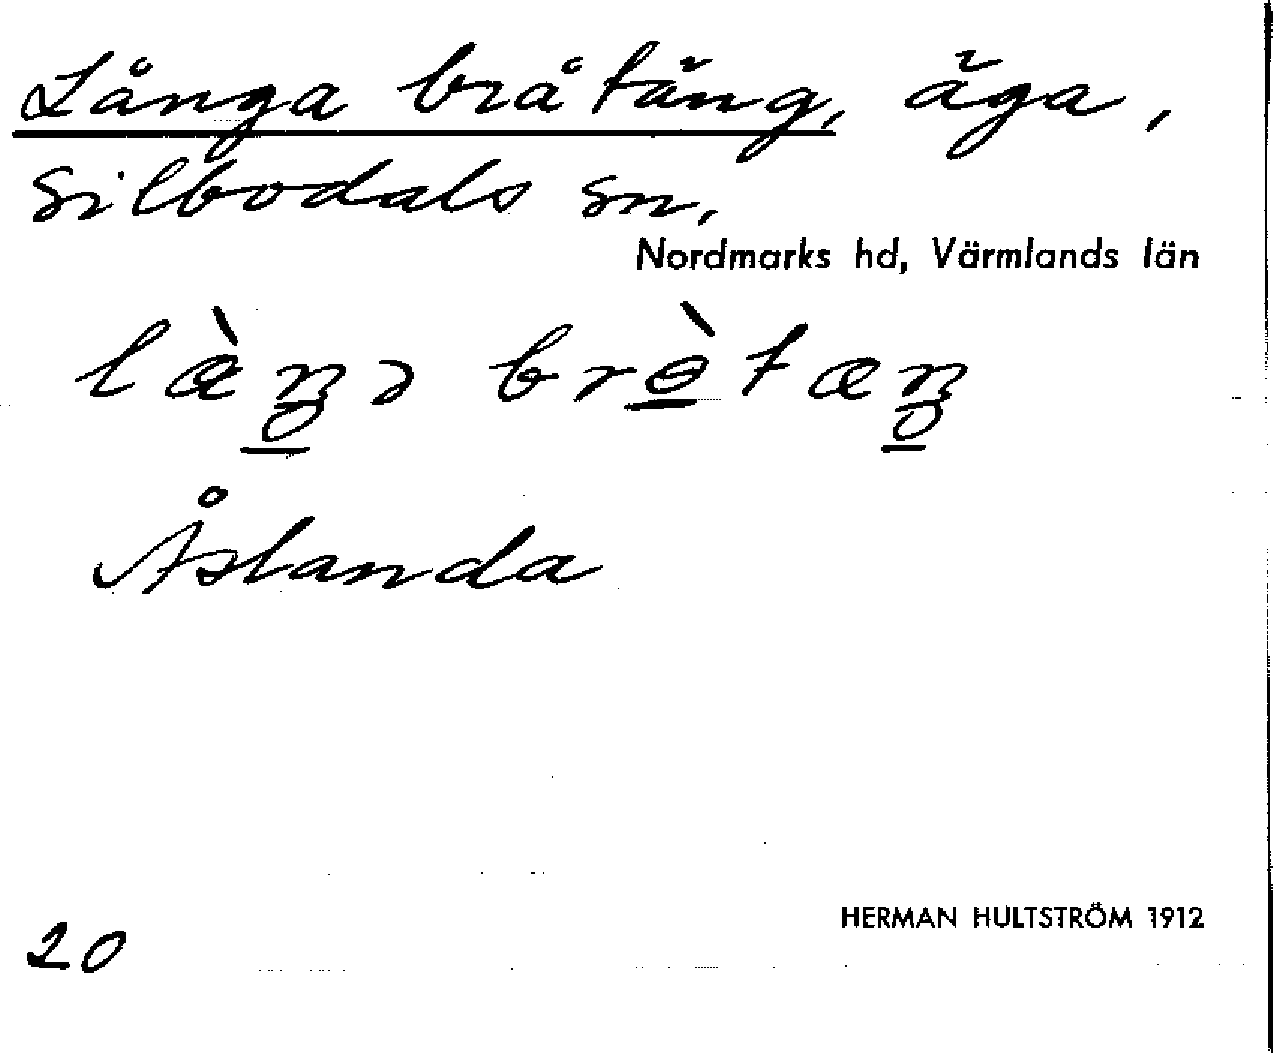 Långa bråtäng, äga,
Silbodals sn,
Nordmarks hd, Värmlands län
Åslanda
HERMAN HULTSTRÖM 1912
20